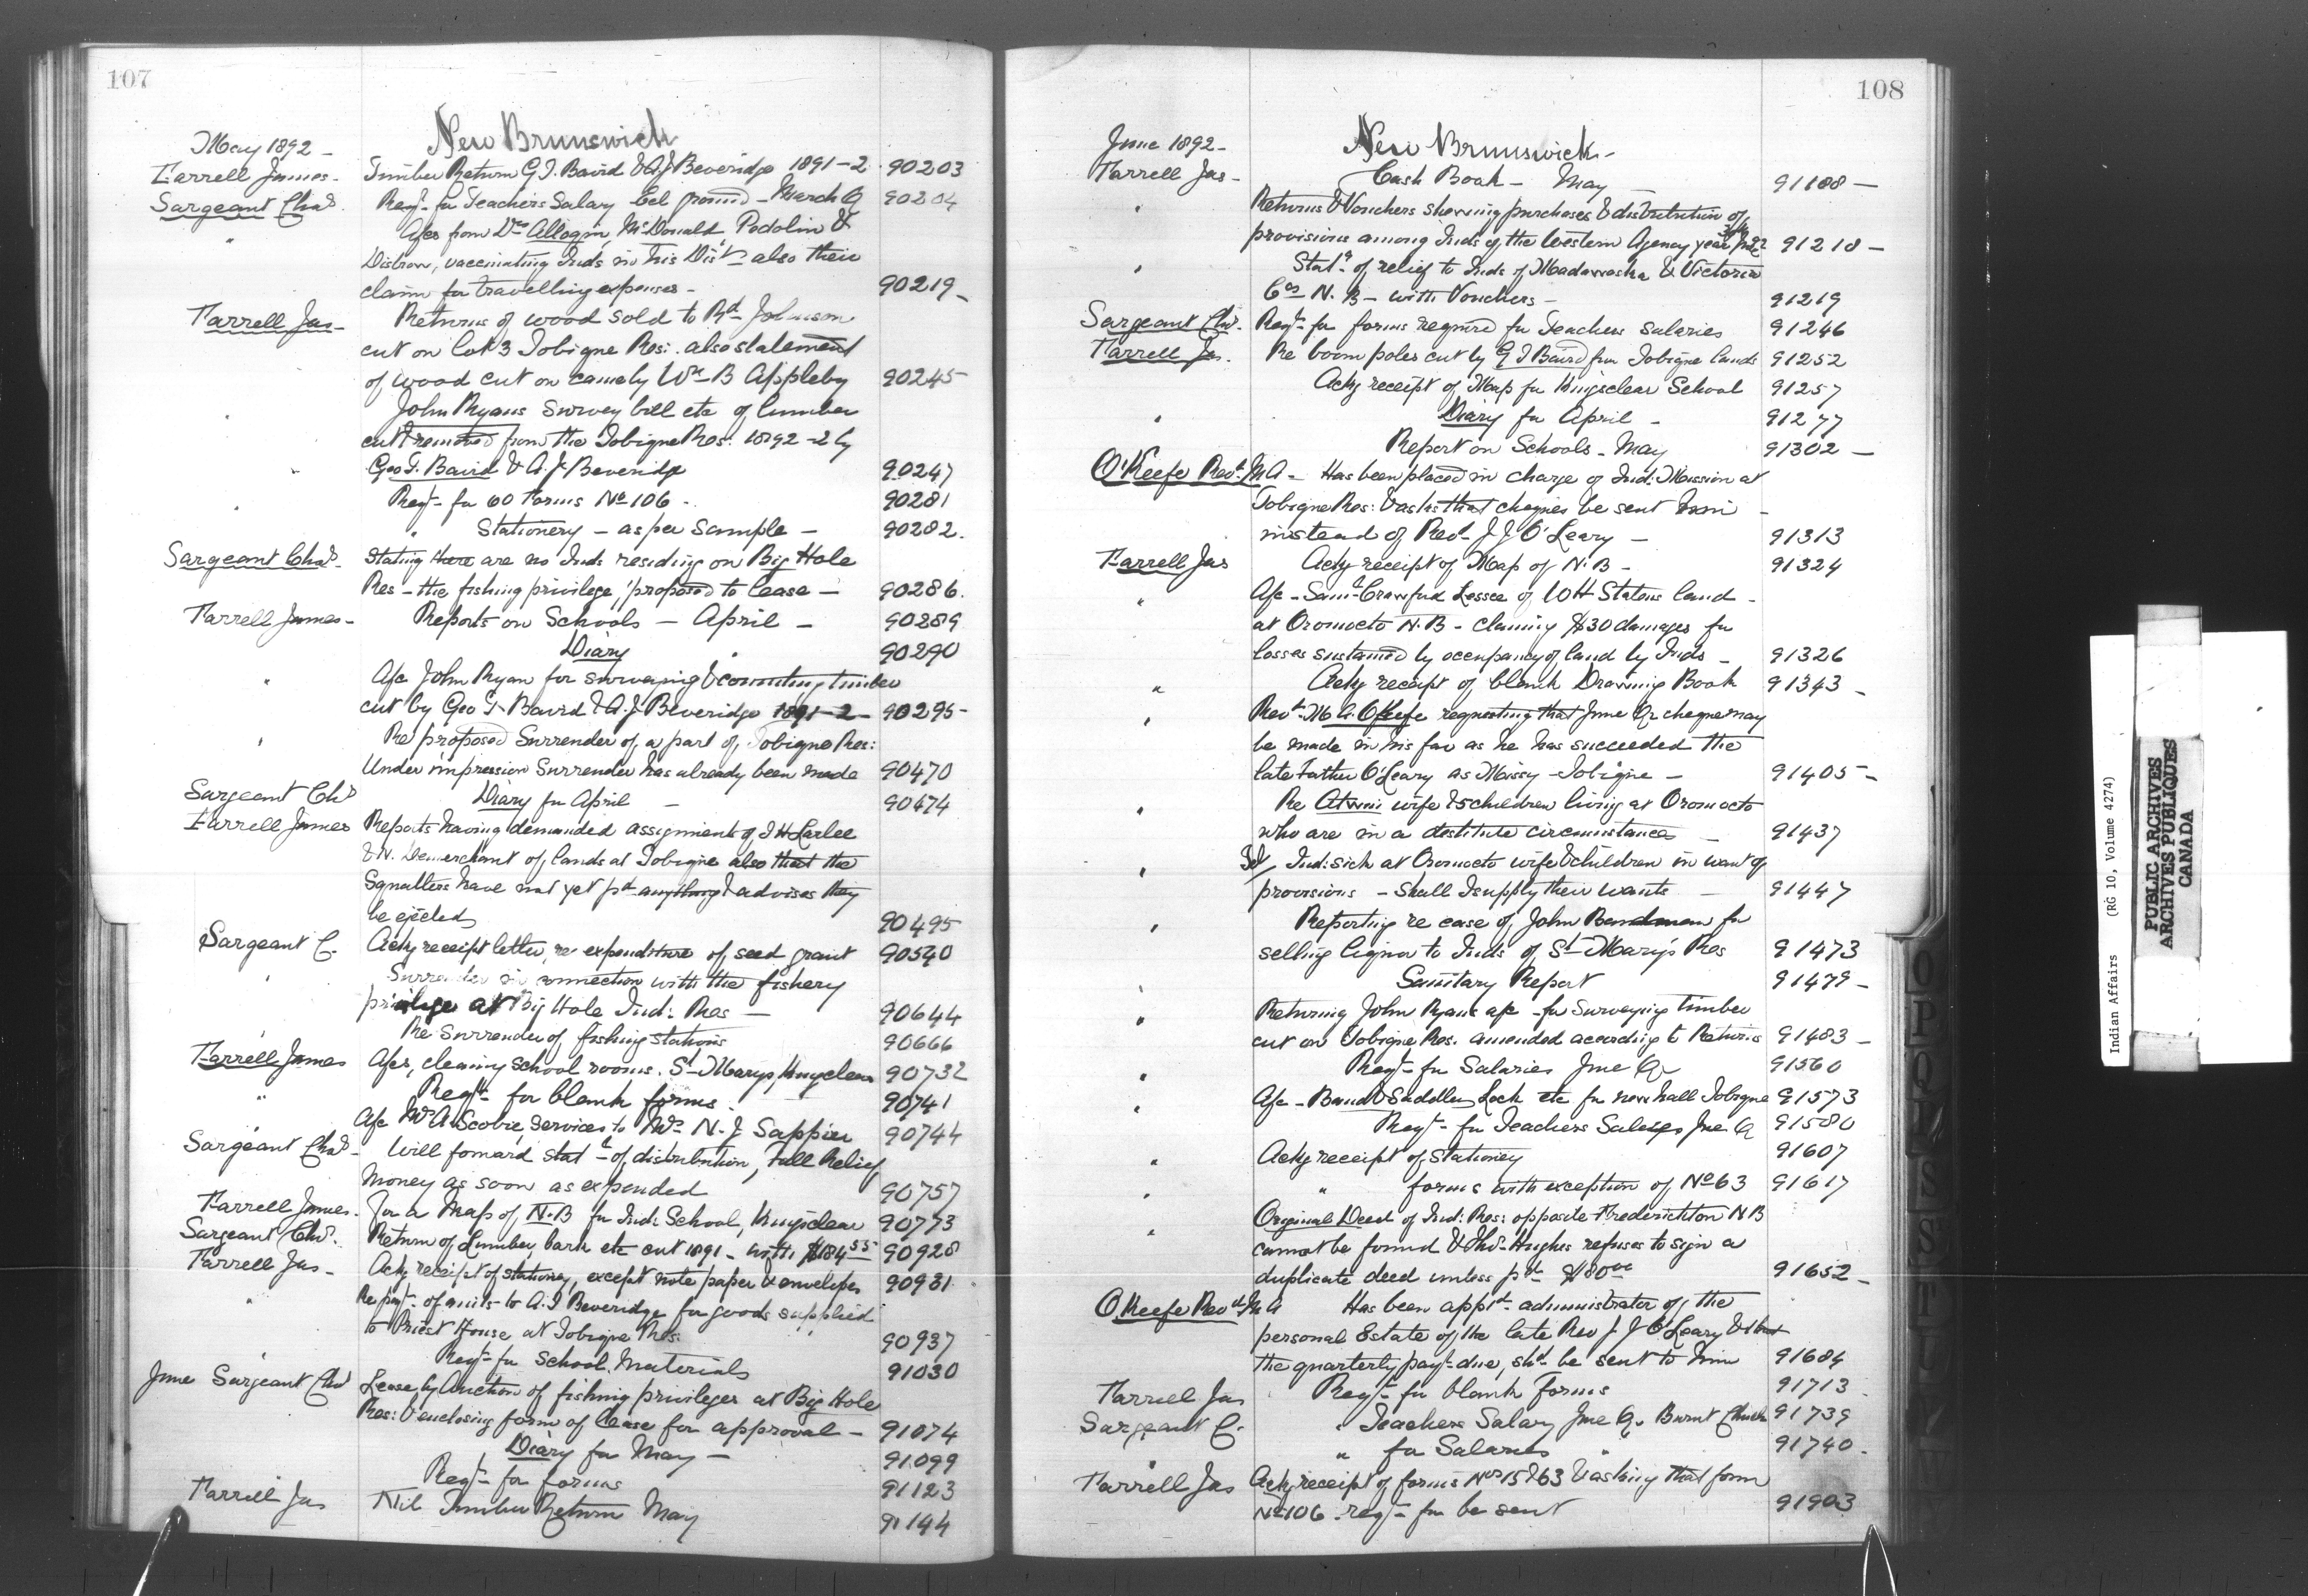 107
New Brunswick
May 1892 -
Farrell James - Timber Return G.T. Baird & A.J Beveridge 1891-2 90203
Sargeant Chas. Reqt- for Teachers Salary Eel ground - March Q 90204
" A/cs from Drs McDonald Pedolin &
vaccinating Inds in his Distt also their
claim for travelling expenses - 90219 -
Farrell Jas - Returns of wood sold to Rt. Johnson
cut on lot 3 Tobique Res: also statement
of wood cut on Wm B Appleby 90245 -
" John Ryans Survey bill etc of lumber
cut & removed from the Tobique Res: 1892-2 by
" Geo T. Baird & A. J. Beveridge 90247
" Reqt- for 60 Forms No 106 - 90281
" Stationery - as per Sample - 90282.
Sargeant Chas. Stating there are no Inds residing on Big Hole
Res - the fishing privilege, proposed to lease - 90286.
Farrell James - Reports on Schools - April - 90289
Diary " 90290
" A/c John Ryan for surveying & counting timber
cut by Geo T. Baird & A. J. Beveridge 1891-2 - 90295 -
" Re proposed Surrender of a part of Tobique Res:
Under impression Surrender has already been made 90470
Sargeant Chs Diary for April - 90474
Farrell James Reports having demanded assignments of T H Larlee
& N. Demerchant of lands at Tobique also that the
Squatters have not yet pd anything & advises they
be ejected 90495
Sargeant C. Ackg receipt letter, re expenditure of seed grant 90540
" Surrender in connection with the fishery
privilege at Big Hole Ind: Res - 90644
Re Surrender of fishing stations 90666
Farrell James A/cs, cleaning school rooms. St Marys, Kingsclear 90732
" Reqt- for blank forms 90741
A/c Mrs A. Scobie Services to Mrs N. J Sappier 90744
Sargeant Chas - Will forward statt of distribution, Fall Relief
Money as soon as expended 90757
Farrell James. For a Map of N.B for Ind: School, Kingsclear 90773
Sargeant Chs. Return of Lumber, bark etc cut 1891 - with $184 55 90928
Farrell Jas - Ackg receipt of stationery, except note paper & envelopes 90931
" Re payt- of amts to A. J Beveridge for goods supplied
to Priest House at Tobique Res: 90937
" Reqt- for School Materials 91030
June Sargeant Chs Lease by Auction of fishing privileges at Big Hole
Res: & enclosing form of lease for approval - 91074
Diary for May - 91099
Reqt- for forms 91123
Farrell Jas Nil Timber Return May 91144
108
June 1892 -
New Brunswick -
Farrell Jas - Cash Book - May - 91188 -
" Returns & Vouchers showing purchases & distribution of
provisions among Inds of the Western Agency year 91218 -
" Statt of relief to Inds of Madawaska & Victoria
Cos N. B - with Vouchers - 91219
Sargeant Chs. Reqt- for forms required for Teachers salaries 91246
Farrell Jas. Re boom poles cut by G T Baird from Tobique lands 91252
Ackg receipt of Map for Kingsclear School 91257
" Diary for April - 91277
Report on Schools - May 91302 -
O'Keefe Revd. M A - Has been placed in charge of Ind: Mission at
Tobique Res: & asks that cheques be sent him -
instead of Revd J J O'Leary - 91313
Farrell Jas Ackg receipt of Map of N. B - 91324
" A/c - Saml Crawford Lessee of W H Statens land -
at Oromocto N. B - claiming $30 damages for
losses sustained by occupancy of land by Inds - 91326
" Ackg receipt of blank Drawing Book 91343 -
" Revd- M A. O'Keefe requesting that June Qr cheque may
be made in his favor as he has succeeded the
late Father O'Leary as Missy - Tobique - 91405 -
" Re wife & 5 children living at Oromocto
who are in a destitute circumstances - 91437
" Ind: sick at Oromocto wife & children in want of
provisions - Shall I supply their wants - 91447
" Reporting re case of John for
selling liquor to Inds of St Marys Res 91473
" Sanitary Report 91479 -
" Returning John Ryans a/c - for Surveying timber
cut on Tobique Res. amended according to Returns 91483 -
" Reqt- for Salaries June Qr 91560
" A/c - Baud & Saddler, Lock etc for new hall Tobique 91573
Reqt- for Teachers Salarys June Q 91580
" Ackg receipt of Stationery 91607
" " forms with exception of No 63 91617
" Original Deed of Ind: Res: opposite Fredericton N B
cannot be found & Thos- Hughes refuses to sign a
duplicate deed unless pd $80 00 91652 -
O'Keefe Revd M A Has been apptd- administrator of the
personal Estate of the late Rev J J O'Leary & that
the quarterly payt- due, shd- be sent to him 91684
Farrell Jas Reqt- for blank Forms 91713
Sargeant C. " Teachers Salary June Q. Burnt Church 91739
" " for Salaries " 91740 -
Farrell Jas Ackg receipt of forms Nos 15 & 63 & asking that form
No 106 - reqd- for be sent 91903
Indian Affairs (RG 10, Volume 4274)
PUBLIC ARCHIVES
ARCHIVES PUBLIQUES
CANADA